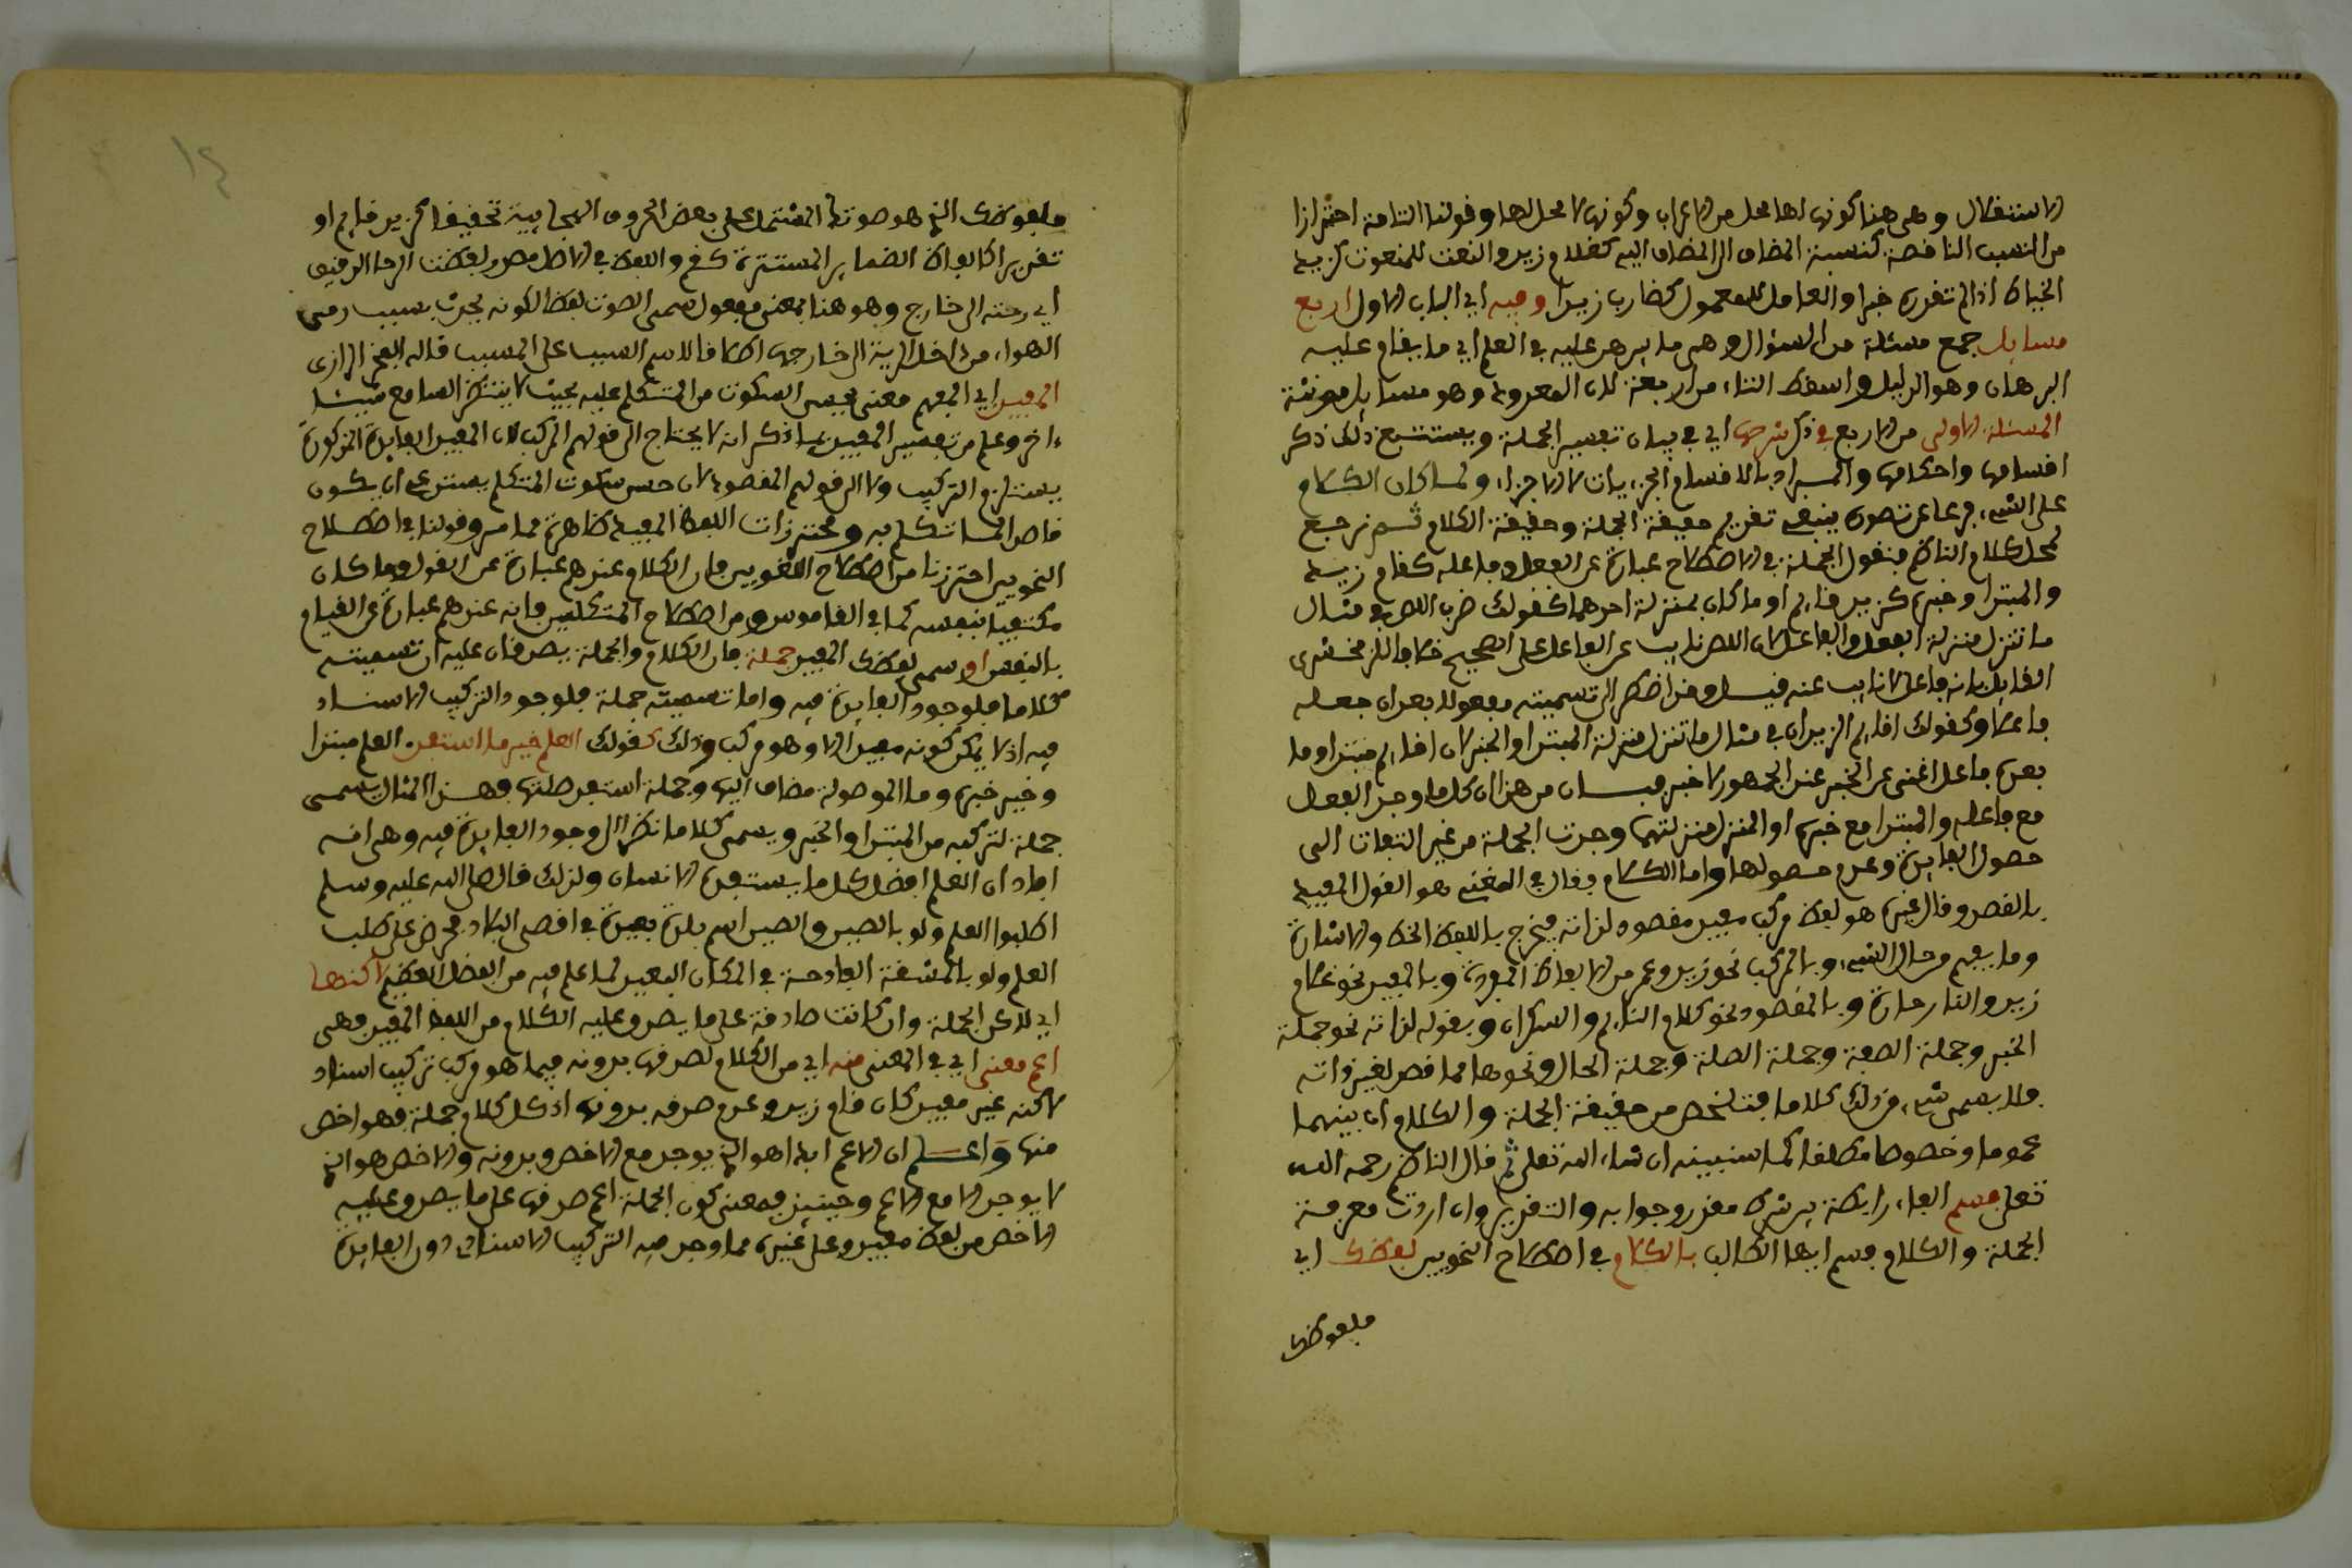 الاستقلال وهي هنا كونها لها محل من الاعراب وكونها لا محل لها وقولنا التامة احترازا
من النسب الناقصة كنسبة المضاف الى المضاف اليه كغلام زيد والنعت للمنعوت كزيد
الخياط اذا لم تقدره خبرا والعامل للمعمول كضارب زيدا وفيه اي الباب الاول اربع
مسايل جمع مسئلة من السؤال وهي ما يبرهن عليه في العلم اي ما يقام عليه
البرهان وهو الدليل واسقط التاء من اربعة لان المعدود وهو مسايل مونثة
المسئلة الاولى من الاربع في ذكر شرحها اي في بيان تفسير الجملة ويستتبع ذلك ذكر
اقسامها واحكامها والمراد بالاقسام الجزءيات لا الاجزاء ولما كان الكلام
على الشيء فرعا عن تصوره ينبغي تقديم حقيقة الجملة وحقيقة الكلام ثم نرجع
لحل كلام الناظم فنقول الجملة في الاصطلاح عبارة عن الفعل وفاعله كقام زيد
والمبتدا وخبره كزيد قايم او ما كان بمنزلة احدهما كقولك ضرب اللص في مثال
ما تنزل منزلة الفعل والفاعل لان اللص نايب عن الفاعل على الصحيح خلافا للزمخشري
القايل بانه فاعل لا نايب عنه فيسل وقد اضطر الى تسميته مفعولا بعد ان جعله
فاعلا وكقولك اقايم الزيدان في مثال ما تنزل منزلة المبتدا والخبر لان اقايم مبتدا وما
بعده فاعل اغنى عن الخبر عند الجمهور لا خبر فبان من هذا ان كل ما وجد الفعل
مع فاعله والمبتدا مع خبره او المنزل منزلتهما وجدت الجملة من غير التفات الى
حصول الفايدة وعدم حصولها واما الكلام فقال في المغني هو القول المفيد
بالقصد وقال غيره هو لفظ مركب مفيد مقصود لذاته فيخرج باللفظ الخط والاشارة
وما يفهم من حال الشيء وبالمركب نحو زيد وعمر من الالفاظ المفردة وبالمفيد نحو غلام
زيد والنار حارة وبالمقصود نحو كلام النايم والسكران وبقوله لذاته نحو جملة
الخبر وجملة الصفة وجملة الصلة وجملة الحال ونحوها مما قصد لغير ذاته
فلا يسمى شيء من ذلك كلاما فتلخص من حقيقة الجملة والكلام ان بينهما
عموما وخصوصا مطلقا كما سنبينه ان شاء الله تعلى ثم قال الناظم رحمه الله
تعلى فسم الفاء رابطة بين شرط مقدر وجوابه والتقدير وان اردت معرفة
الجملة والكلام فسم ايها الطالب بالكلام في اصطلاح النحويين لفظك اي
ملفوظك
ملفوظك الذي هو صوتك المشتمل على بعض الحروف الهجايية تحقيقا كزيد قايم او
تقديرا كالفاظ الضماير المستترة كقم واللفظ في الاصل مصدر لفظت الرحا الدقيق
اي رمته الى خارج وهو هنا بمعنى مفعول سمي الصوت لفظا لكونه يحدث بسبب رمي
الهواء من داخل الرية الى خارجها اطلاقا لاسم السبب على المسبب قاله الفخر الرازي
المفيد اي المفهم معنى يحسن السكوت من المتكلم عليه بحيث لا ينتظر السامع شيئا
ءاخر وعلم من تفسير المفيد بما ذكر انه لا يحتاج الى قولهم المركب لان المفيد الفايدة المذكورة
يستلزم التركيب ولا الى قولهم المقصود لان حسن سكوت المتكلم يستدعي ان يكون
قاصدا لما تكلم به ومحترزات اللفظ المفيد ظاهرة مما مر وقولنا في اصطلاح
النحويين احترزنا من اصطلاح اللغويين فان الكلام عندهم عبارة عن القول وما كان
مكتفيا بنفسه كما في القاموس ومن اصطلاح المتكلمين فانه عندهم عبارة عن القيام
بالنفس او سمي لفظك المفيد جملة فان الكلام والجملة يصدقان عليه ان تسميته
كلاما فلوجود الفايدة فيه واما تسميته جملة فلوجود التركيب الاسناد
فيه اذ لا يمكن كونه مفيدا الا وهو مركب وذلك كقولك العلم خير ما استفد العلم مبتدا
وخير خبره وما الموصولة مضاف اليها وجملة استفد صلتها فهذا المثال يسمى
جملة لتركبه من المبتدا والخبر ويسمى كلاما نظرا الى وجود الفايدة فيه وهي انه
افاد ان العلم افضل كل ما يستفده الانسان ولذلك قال صلى الله عليه وسلم
اطلبوا العلم ولو بالصين والصين اسم بلدة بعيدة في اقصى البلاد فحرض على طلب
العلم ولو بالمشقة الفادحة في المكان البعيد لما علم فيه من الفضل العظيم لاكنها
اي لاكن الجملة وان كانت صادقة على ما يصدق عليه الكلام من اللفظ المفيد فهي
اعم معنى اي في المعنى منه اي من الكلام لصدقها بدونه فيما هو مركب تركيب اسناد
لاكنه غير مفيد كان قام زيد وعدم صدقه بدونها اذ كل كلام جملة فهو اخص
منها واعلم ان الاعم ابدا هو الذي يوجد مع الاخص وبدونه والاخص هو الذي
لا يوجد الا مع الاعم وحينيذ فمعنى كون الجملة اعم صدقها على ما يصدق عليه
الاخص من لفظ مفيد وعلى غيره مما وجد فيه التركيب الاسنادي دون الفايدة